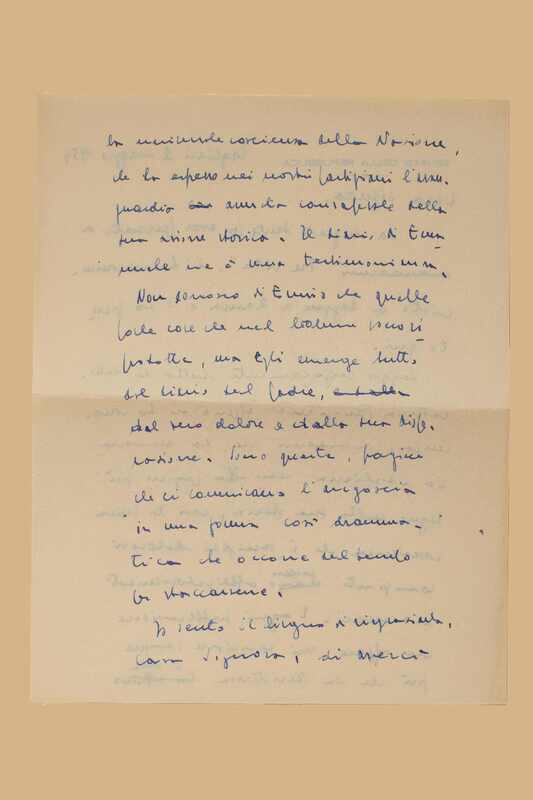 la universale coscienza della Nazione,
che ha espresso nei nostri partigiani l'avan-
guardia armata consapevole della
sua missione storica. Il diario di Ennio
anche ne è una testimonianza.
Non conosco di Ennio che quelle
poche cose che nel volume sono
, ma Egli emerge tutto
dal diario del padre,
dal suo dolore e dalla sua dispe-
razione. Sono queste, pagine
che ci comunicano l'angoscia
in una forma così dramma-
tica che occorre del tempo
per staccarsene.
Io sento il bisogno di ringraziarla,
Cara Signora, di averci